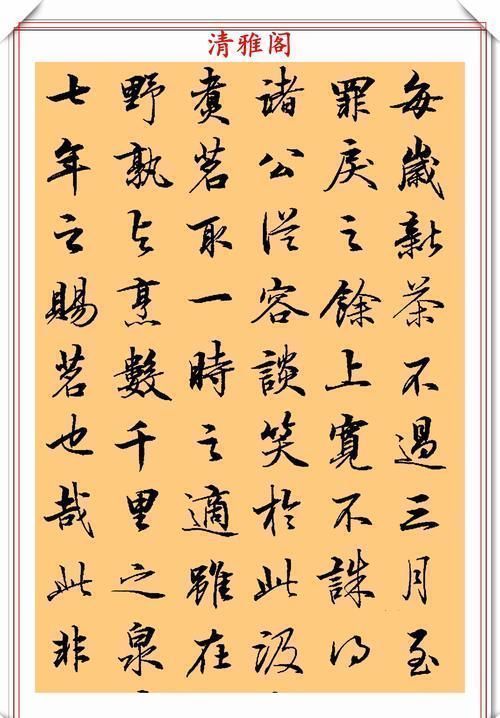 清雅阁
每歲新茶不過三月至
罪戾之餘上寬不誅得
諸公從容談笑於此汲
煑茗取一時之適雖在
野孰与烹數千里之泉
七年之賜茗也哉此非